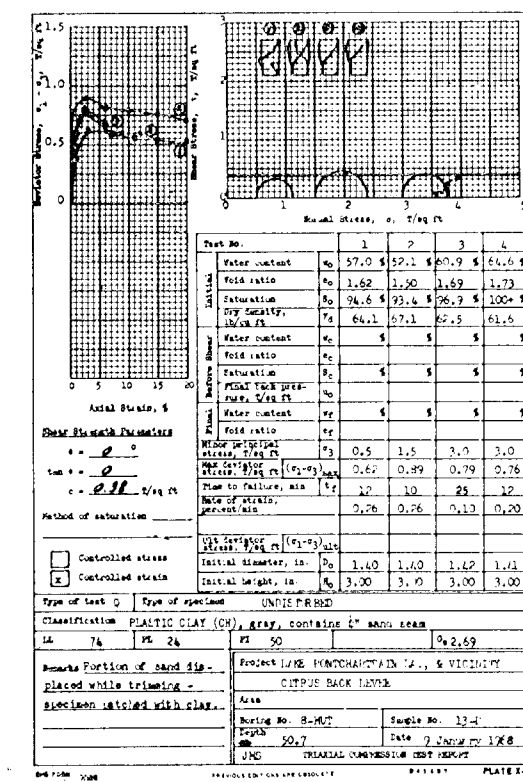 1.5
1.0
0.5
0
Deviator Stress, σ1 - σ3, T/sq ft
0 5 10 15 20
Axial Strain, %
3
2
1
0
Shear Stress, τ, T/sq ft
0 1 2 3 4 5
Normal Stress, σ, T/sq ft
Shear Strength Parameters
φ = 0 °
tan φ = 0
c = 0.38 T/sq ft
Method of saturation
Controlled stress
x Controlled strain
Test No. 1 2 3 4
Initial
Water content w0 57.0 % 52.1 % 60.9 % 64.6 %
Void ratio e0 1.62 1.50 1.69 1.73
Saturation S0 94.6 % 93.4 % 96.9 % 100+ %
Dry density, lb/cu ft γd 64.1 67.1 62.5 61.6
Before Shear
Water content wc % % % %
Void ratio ec
Saturation Sc % % % %
Final back pressure, T/sq ft u0
Final
Water content wf % % % %
Void ratio ef
Minor principal stress, T/sq ft σ3 0.5 1.5 3.0 3.0
Max deviator stress, T/sq ft (σ1-σ3)max 0.62 0.89 0.79 0.76
Time to failure, min tf 12 10 25 12
Rate of strain, percent/min 0.26 0.26 0.10 0.20
Ult deviator stress, T/sq ft (σ1-σ3)ult
Initial diameter, in. D0 1.40 1.40 1.42 1.41
Initial height, in. H0 3.00 3.00 3.00 3.00
Type of test Q Type of specimen UNDISTURBED
Classification PLASTIC CLAY (CH), gray, contains sand seam
LL 74 PL 24 PI 50 Gs 2.69
Remarks Portion of sand dis-
placed while trimming -
specimen patched with clay.
Project LAKE PONTCHARTRAIN LA., & VICINITY
CITRUS BACK LEVEE
Area
Boring No. 8-MUT Sample No.
Depth 50.7 Date 9 January 1968
JMS TRIAXIAL COMPRESSION TEST REPORT
PREVIOUS EDITIONS ARE OBSOLETE